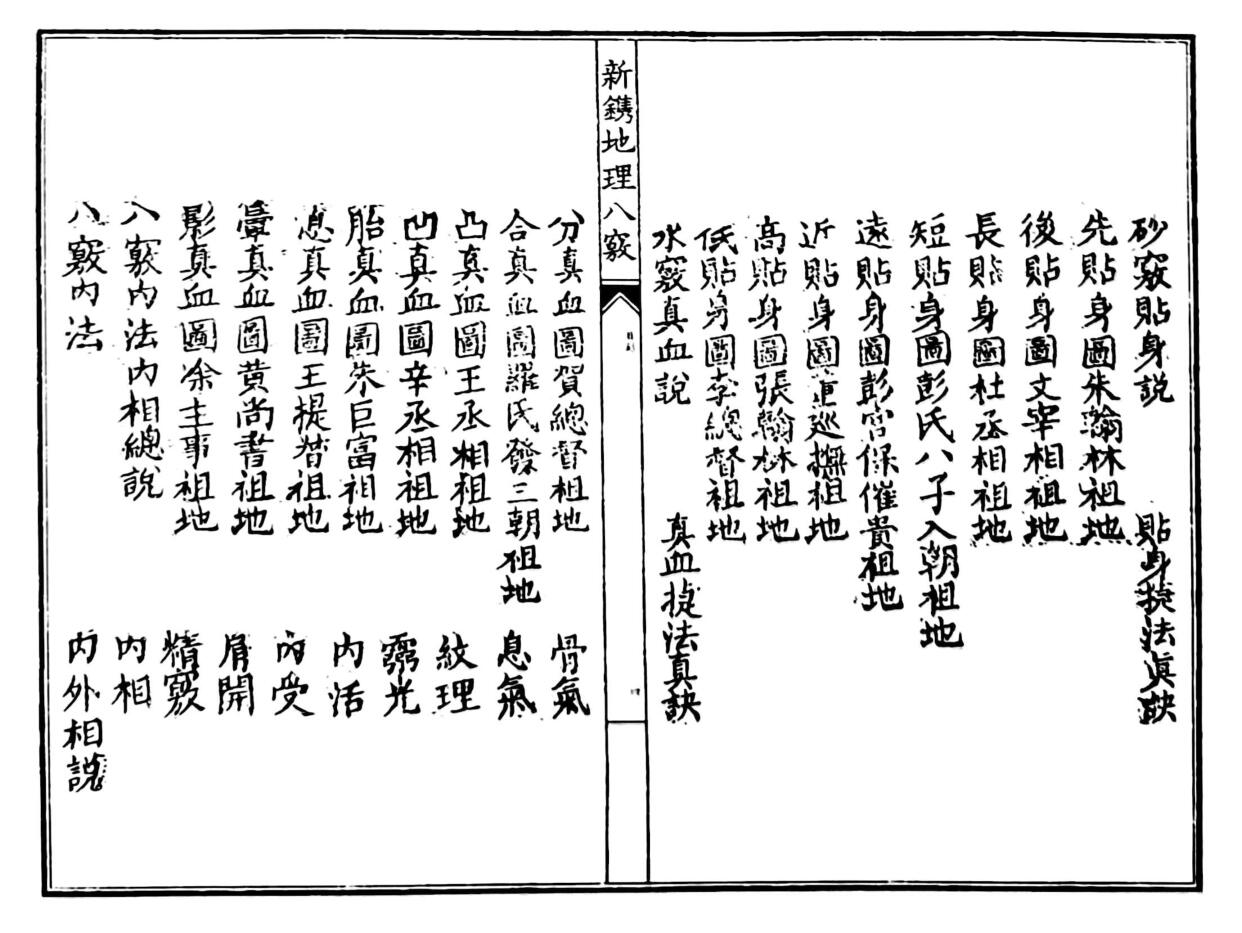 砂竅貼身説　貼身捷法眞訣
先貼身圖朱翰林祖地
後貼身圖文宰相祖地
長貼身圖杜丞相祖地
短貼身圖彭氏八子入朝祖地
遠貼身圖彭宮保催貴祖地
近貼身圖董巡撫祖地
高貼身圖張翰林祖地
低貼身圖李總督祖地
水竅真血說　真血捷法真訣
新鐫地理八竅
目錄
四
分真血圖賀總督祖地　骨氣
合真血圖羅氏發三朝祖地　息氣
凸真血圖王丞相祖地　紋理
凹真血圖辛丞相祖地　光
胎真血圖朱巨富祖地　內活
息真血圖王提督祖地　內受
暈真血圖黄尚書祖地　開
影真血圖余主事祖地　精竅
八竅內法內相總說　內相
八竅內法　內外相說